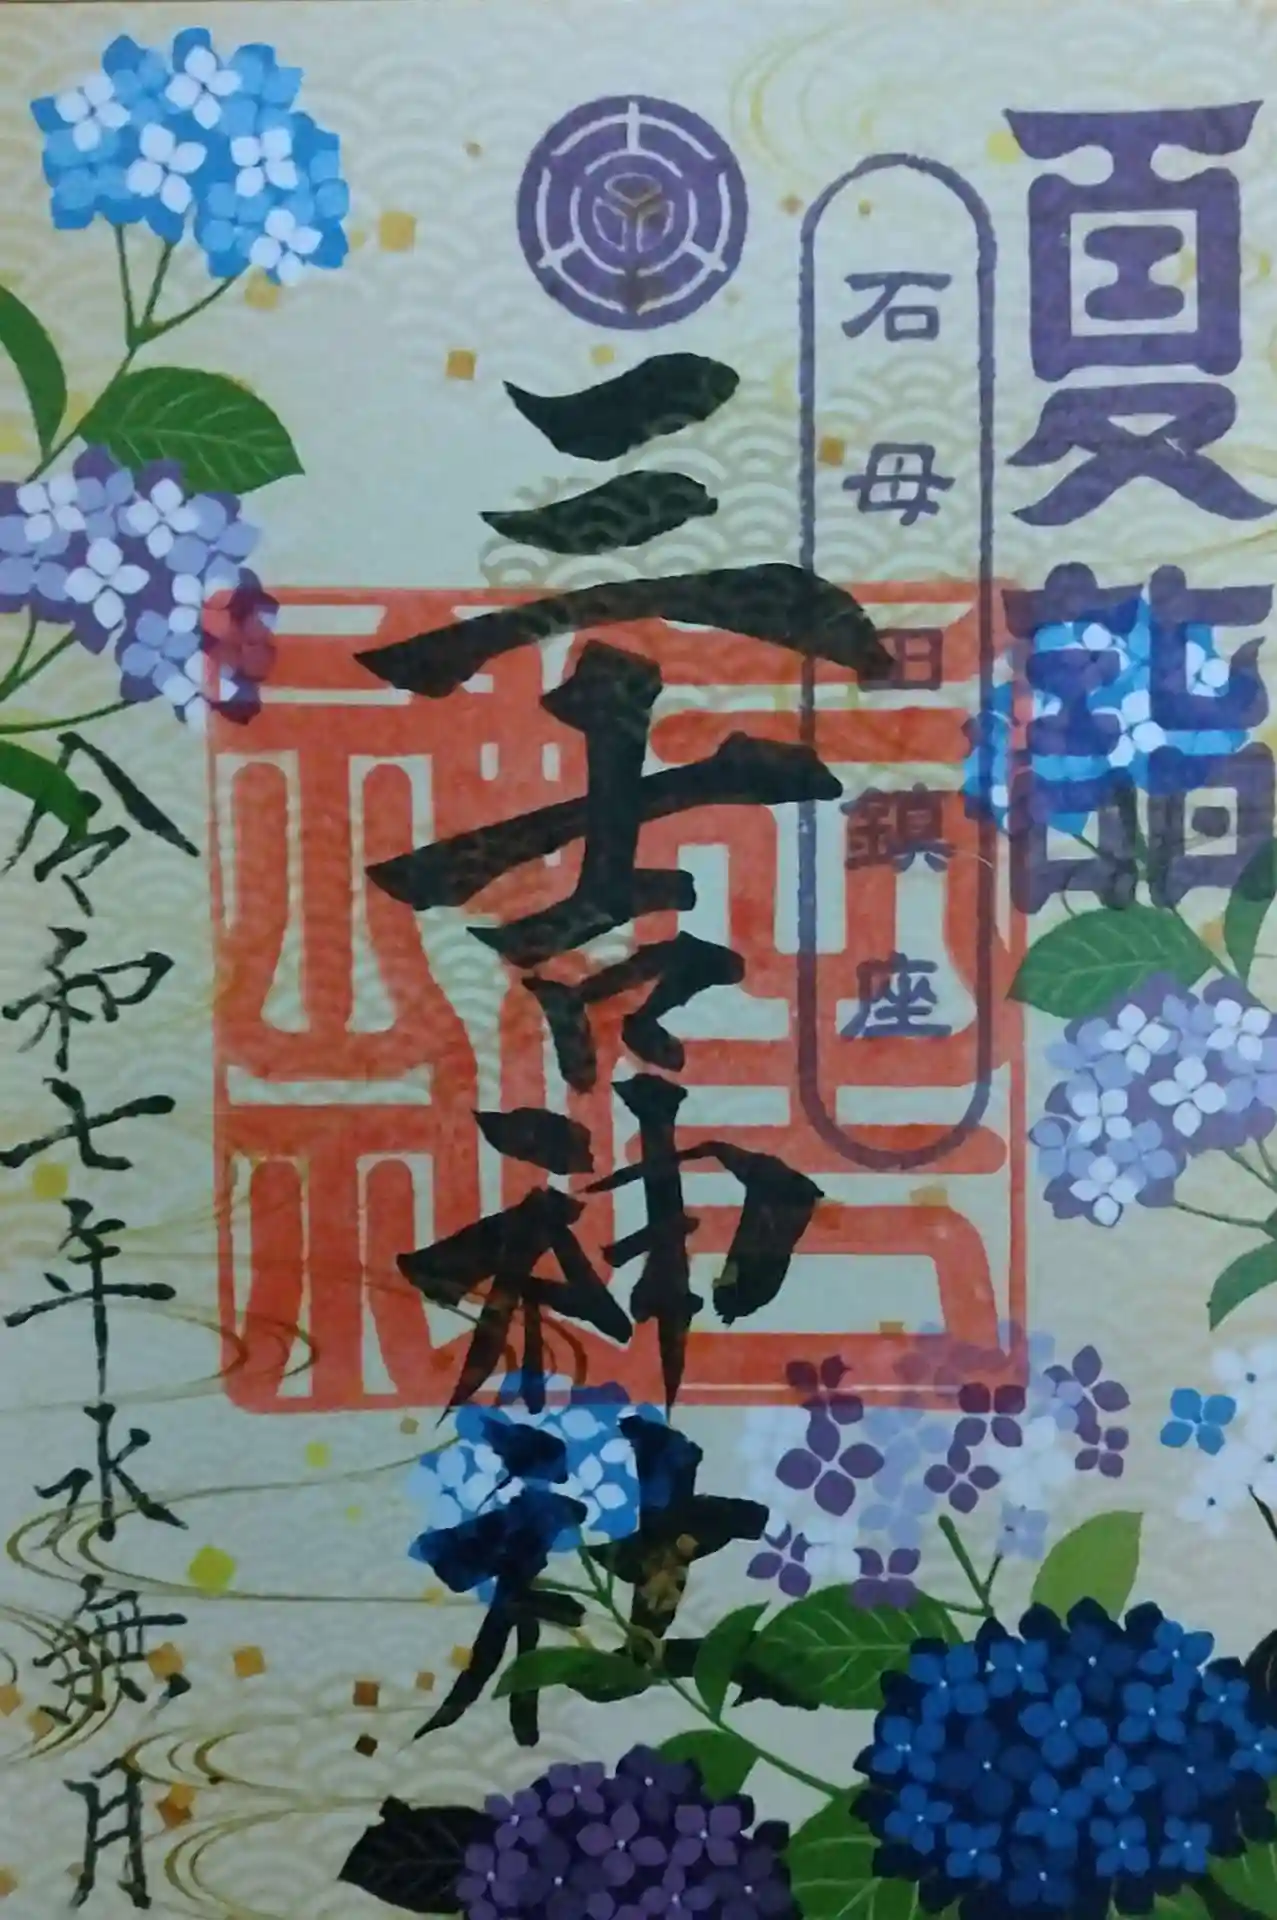 夏詣
石母田鎮座
三吉神社
三吉神社
令和七年水無月